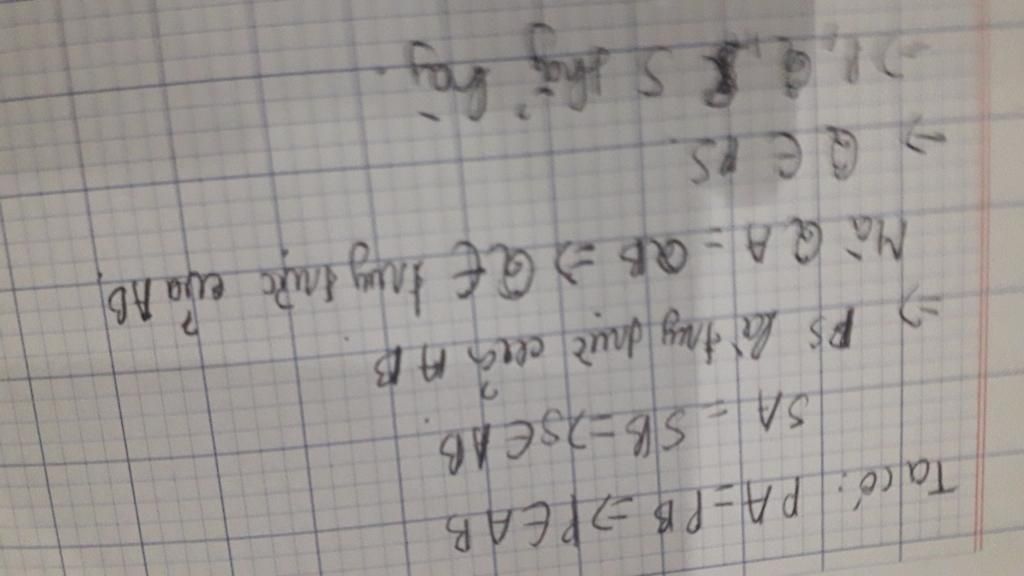 Ta có: PA = PB => P ∈ AB
SA = SB => S ∈ AB
=> PS là trung trực của AB
Mà QA = QB => Q ∈ trung trực của AB
=> Q ∈ PS.
=> P, Q, S thẳng hàng.